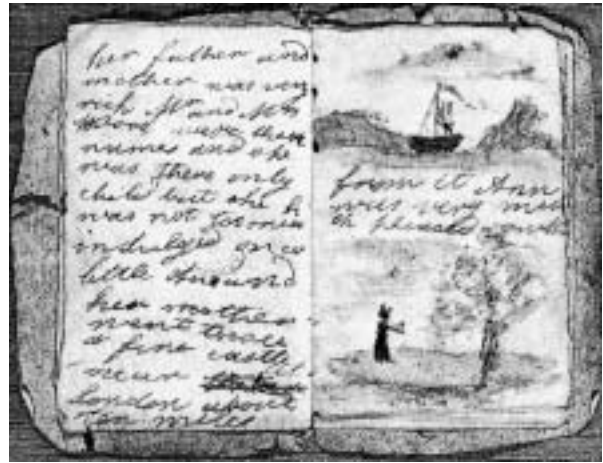 her father and
mother was very
rich Mr and Mrs
Wood were their
names and she
was there only
child but she
was not
indulged
little Ann and
her mother
went to see
a fine castle
near
london about
ten miles
from it Ann
was very
pleased